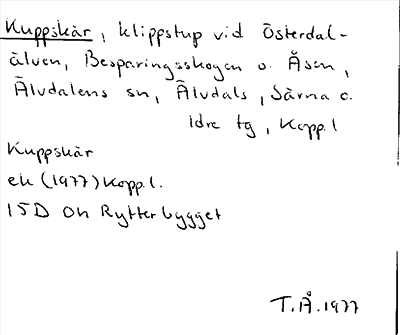 Kuppskär, klippstup vid Österdal-
älven, Besparingsskogen o. Åsen,
Älvdalens sn, Älvdals, Särna o.
Idre tg, Kopp. l
Kuppskär
ek (1977) Kopp. l.
15D 0h Rytterbygget
T.Å. 1977